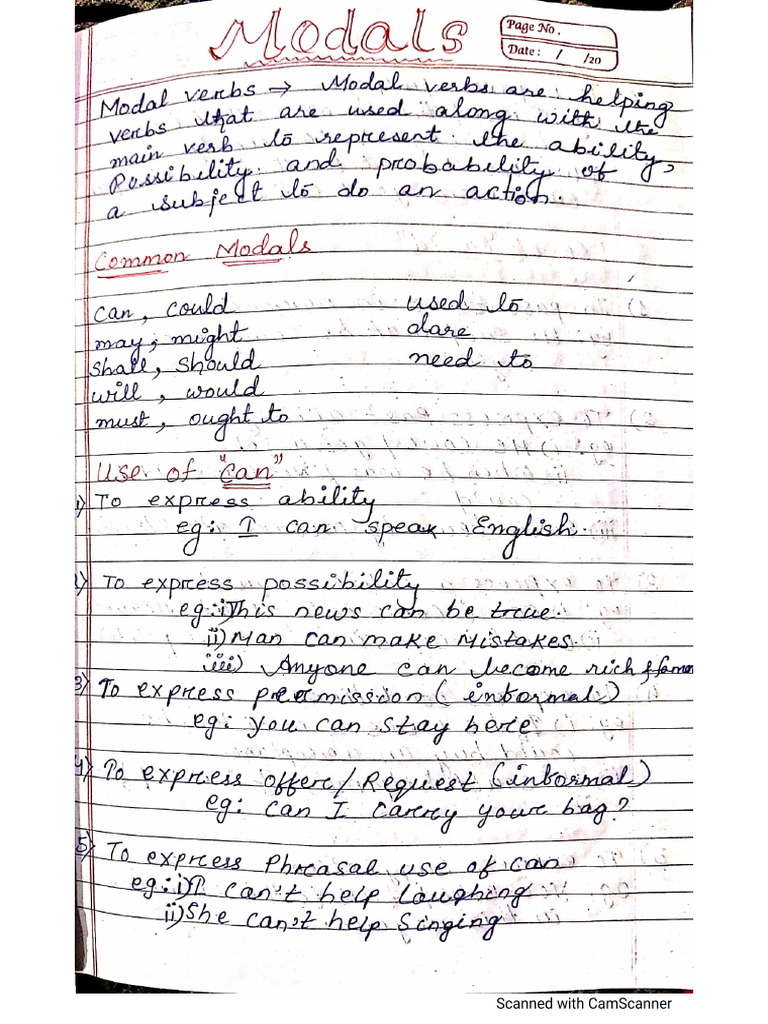 Modals
Page No.
Date: / /20
Modal verbs → Modal verbs are helping
verbs that are used along with the
main verb to represent the ability,
Possibility and probability of
a subject to do an action.
Common Modals
can, could used to
may, might dare
shall, should need to
will, would
must, ought to
Use of "can"
1) To express ability
eg: I can speak English.
2) To express possibility
eg: i) This news can be true.
ii) Man can make mistakes.
iii) Anyone can become rich & famou
3) To express permission (informal)
eg: you can stay here
4) To express offer/Request (informal)
eg: can I carry your bag?
5) To express Phrasal use of can
eg: i) I can't help laughing
ii) She can't help singing
Scanned with CamScanner